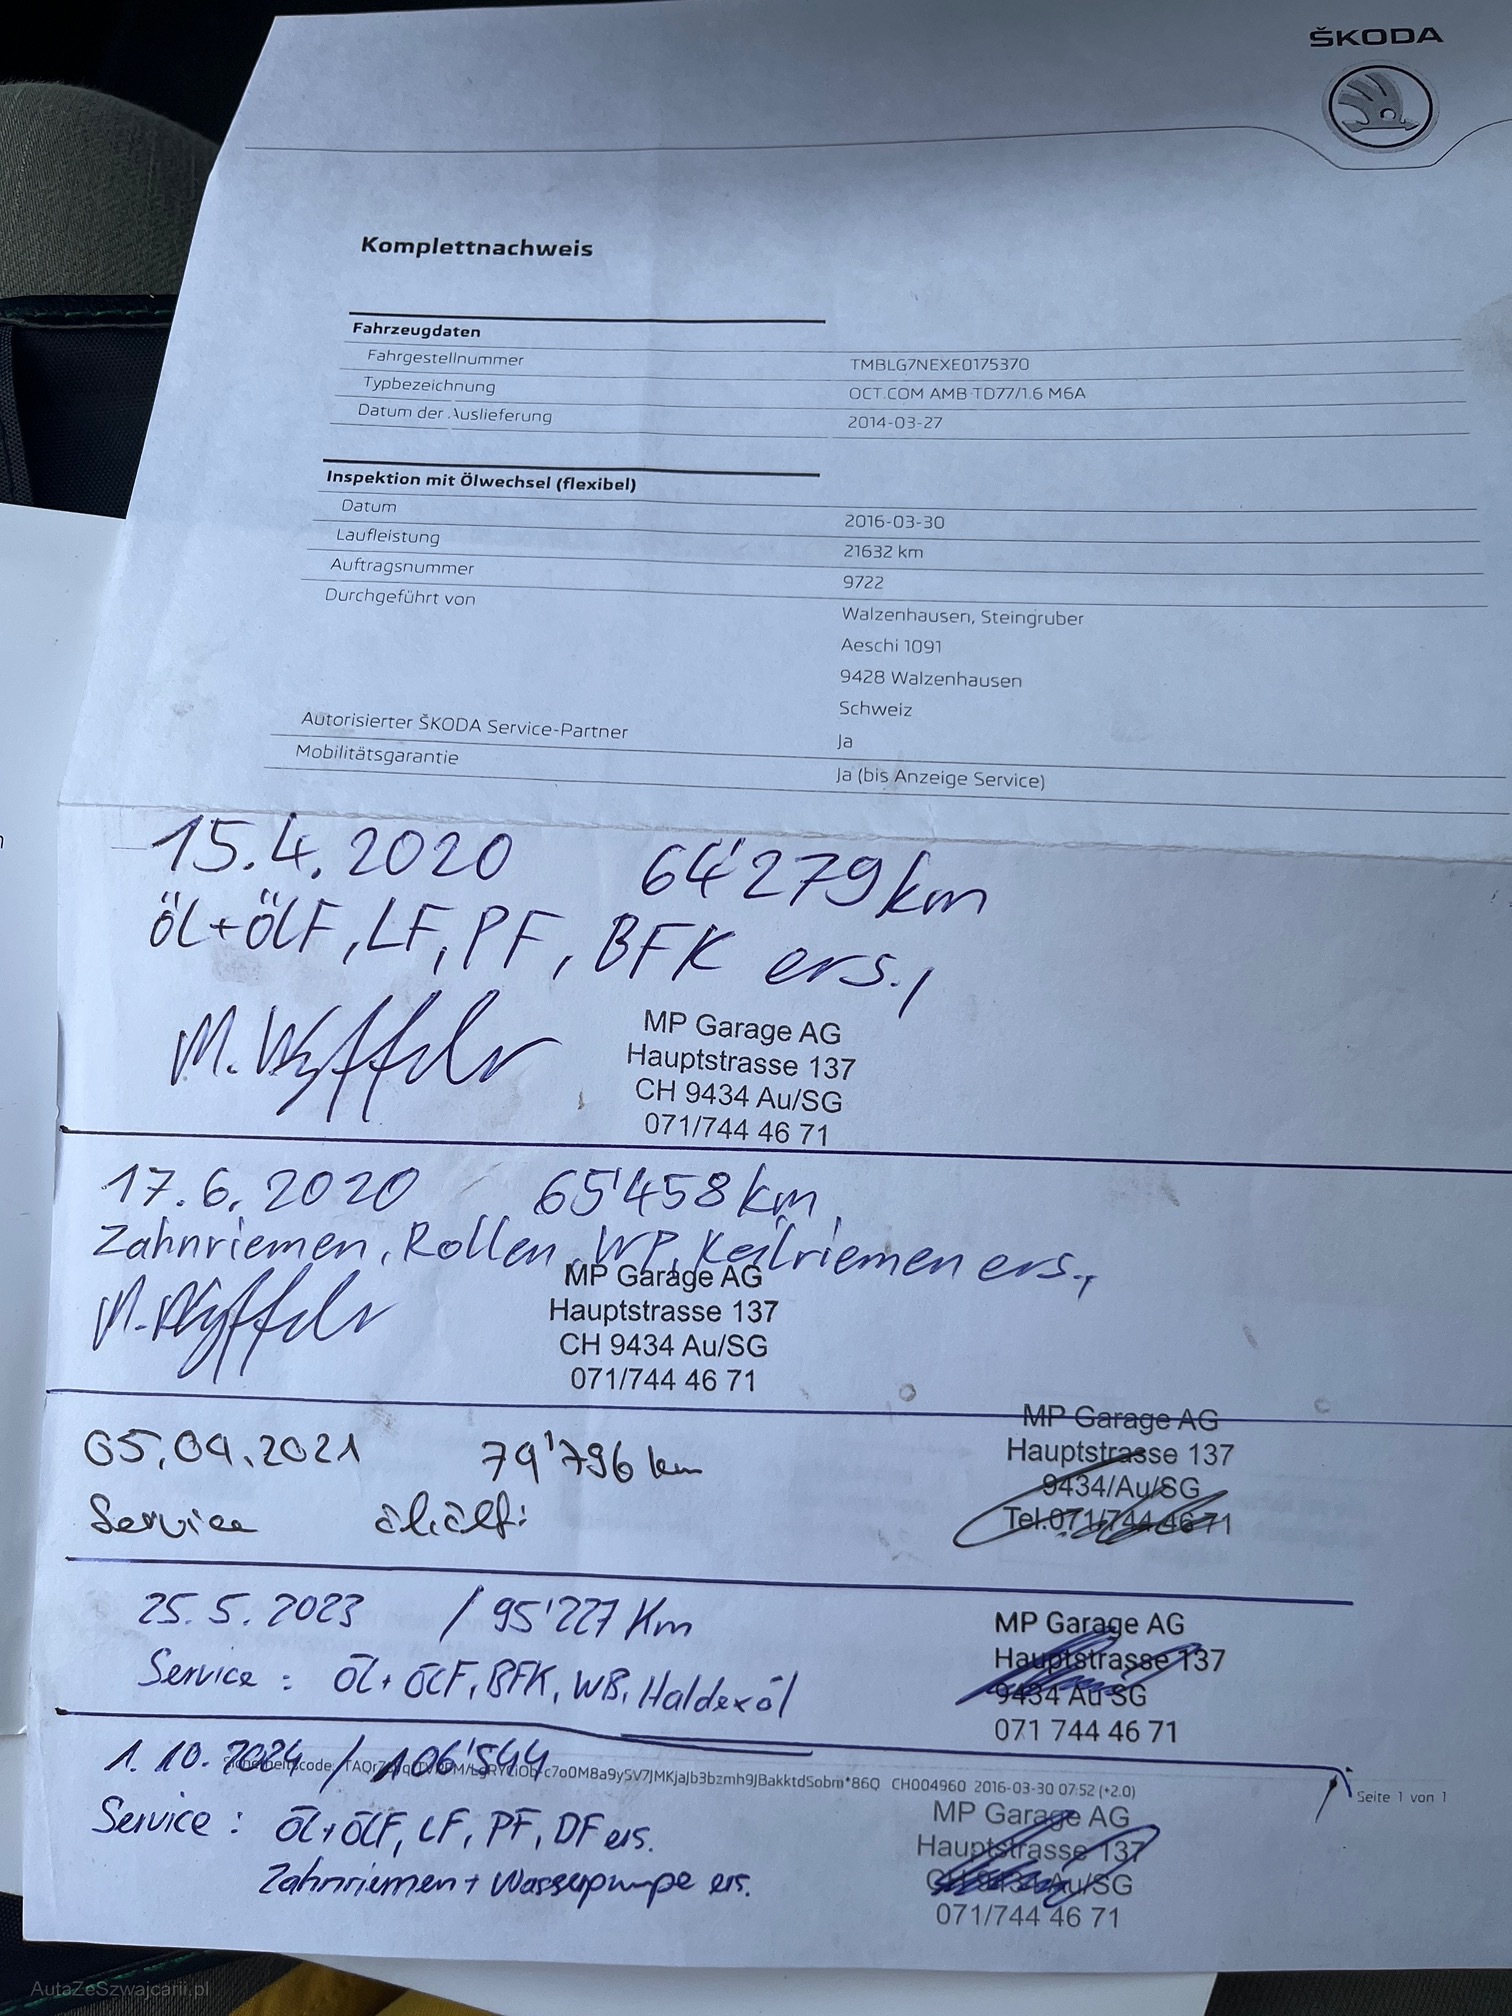 ŠKODA
Komplettnachweis
Fahrzeugdaten
Fahrgestellnummer TMBLG7NEXE0175370
Typbezeichnung OCT.COM AMB TD77/1.6 M6A
Datum der Auslieferung 2014-03-27
Inspektion mit Ölwechsel (flexibel)
Datum 2016-03-30
Laufleistung 21632 km
Auftragsnummer 9722
Durchgeführt von Walzenhausen, Steingruber
Aeschi 1091
9428 Walzenhausen
Schweiz
Autorisierter ŠKODA Service-Partner Ja
Mobilitätsgarantie Ja (bis Anzeige Service)
15.4.2020 64'279 km
Öl+ÖLF, LF, PF, BFK ers.,
MP Garage AG
Hauptstrasse 137
CH 9434 Au/SG
071/744 46 71
17.6.2020 65'458 km
Zahnriemen, Rollen, WP, Keilriemen ers.,
MP Garage AG
Hauptstrasse 137
CH 9434 Au/SG
071/744 46 71
79'796 km
Service
MP Garage AG
Hauptstrasse 137
9434/Au/SG
Tel.071/744 46 71
25.5.2023 / 95'227 Km
Service : Öl+ÖLF, BFK, WB, Haldexöl
MP Garage AG
Hauptstrasse 137
9434 Au SG
071 744 46 71
1.10.2024 / 106'544
CH004960 2016-03-30 07:52 (+2.0)
Seite 1 von 1
Service : Öl+ÖLF, LF, PF, DF ers.
Zahnriemen + Wasserpumpe ers.
MP Garage AG
Hauptstrasse 137
CH 9434 Au/SG
071/744 46 71
AutaZeSzwajcarii.pl